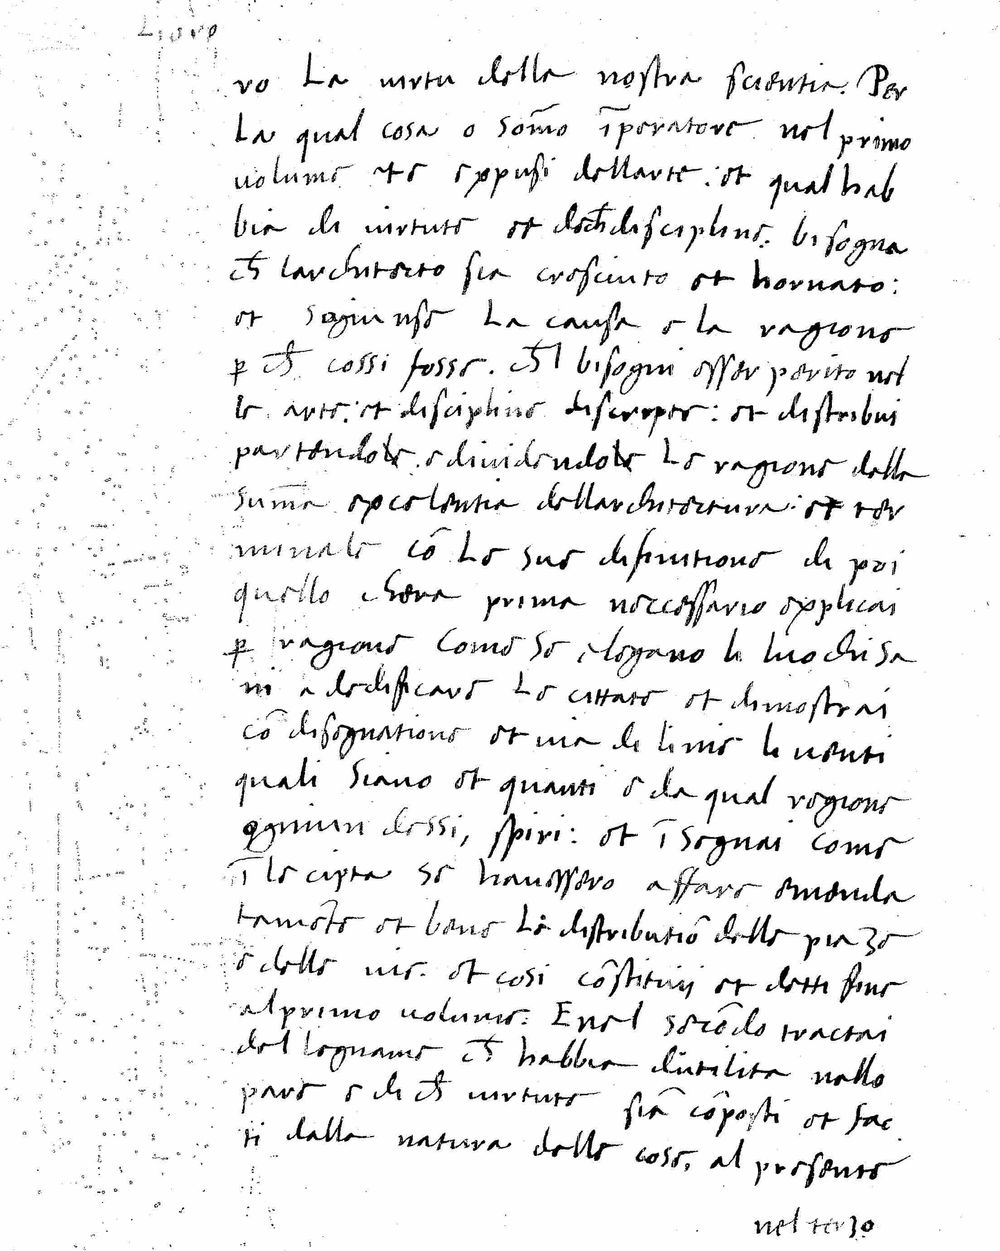 Libro
ro La uirtu della nostra scientia. Per
La qual cosa o som̄o īperatore nel primo
uolume te expusi dellarte: et qual hab
bia di uirtute et de ch̄ discipline. bisogna
ch̄ larchitecto sia cresciuto et hornato:
et sogiunse La causa e la ragione
ꝑ ch̄ cossi fosse. ch̄l bisogni esser perito nel
le arte: et discipline discrepte: et distribui
partendole e diuidendole Le ragione della
sum̄a excelentia dellarchitectura: et ter
minale cō Le sue difinitione di poi
quello chera prima neccessario explicai
ꝑ ragione Come se elegano li luochi sa
ni a dedificare Le cittate et dimostrai
cō disegnatione et uia di linie li uenti
quali Siano et quanti e da qual regione
ogniun dessi, spiri: et īsegnai come
ī le cipta se hauessero affare emenda
tamēte et bene Le distributiō delle piaze
e delle uie. et cosi cōstituij et detti fine
al primo uolume. E nel secōdo tractai
del legname ch̄ habbia dutilita nello
pare e di ch̄ uirtute siā cōposti et fac
ti dalla natura delle cose, al presente
nel terzo